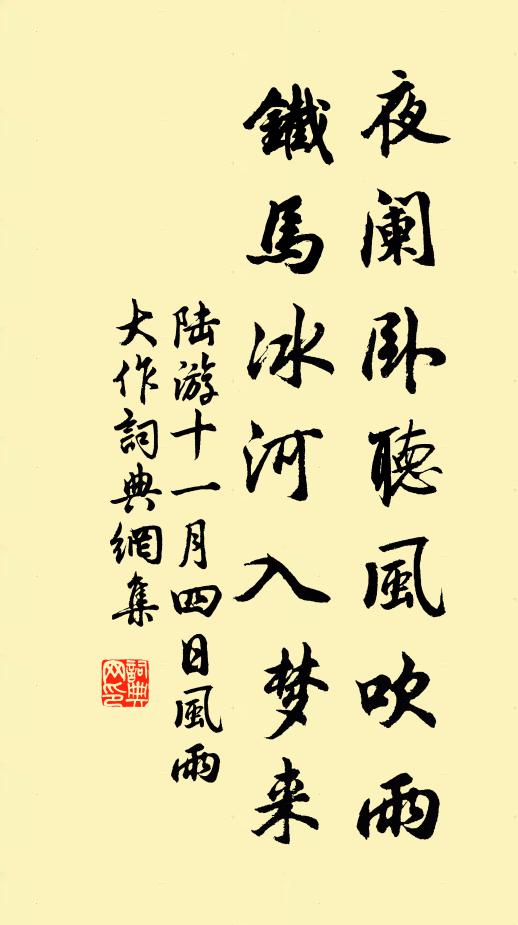 夜阑卧聽風吹雨
鐵馬冰河入梦来
陆游十一月四日風雨
大作詞典網集
詞典网印